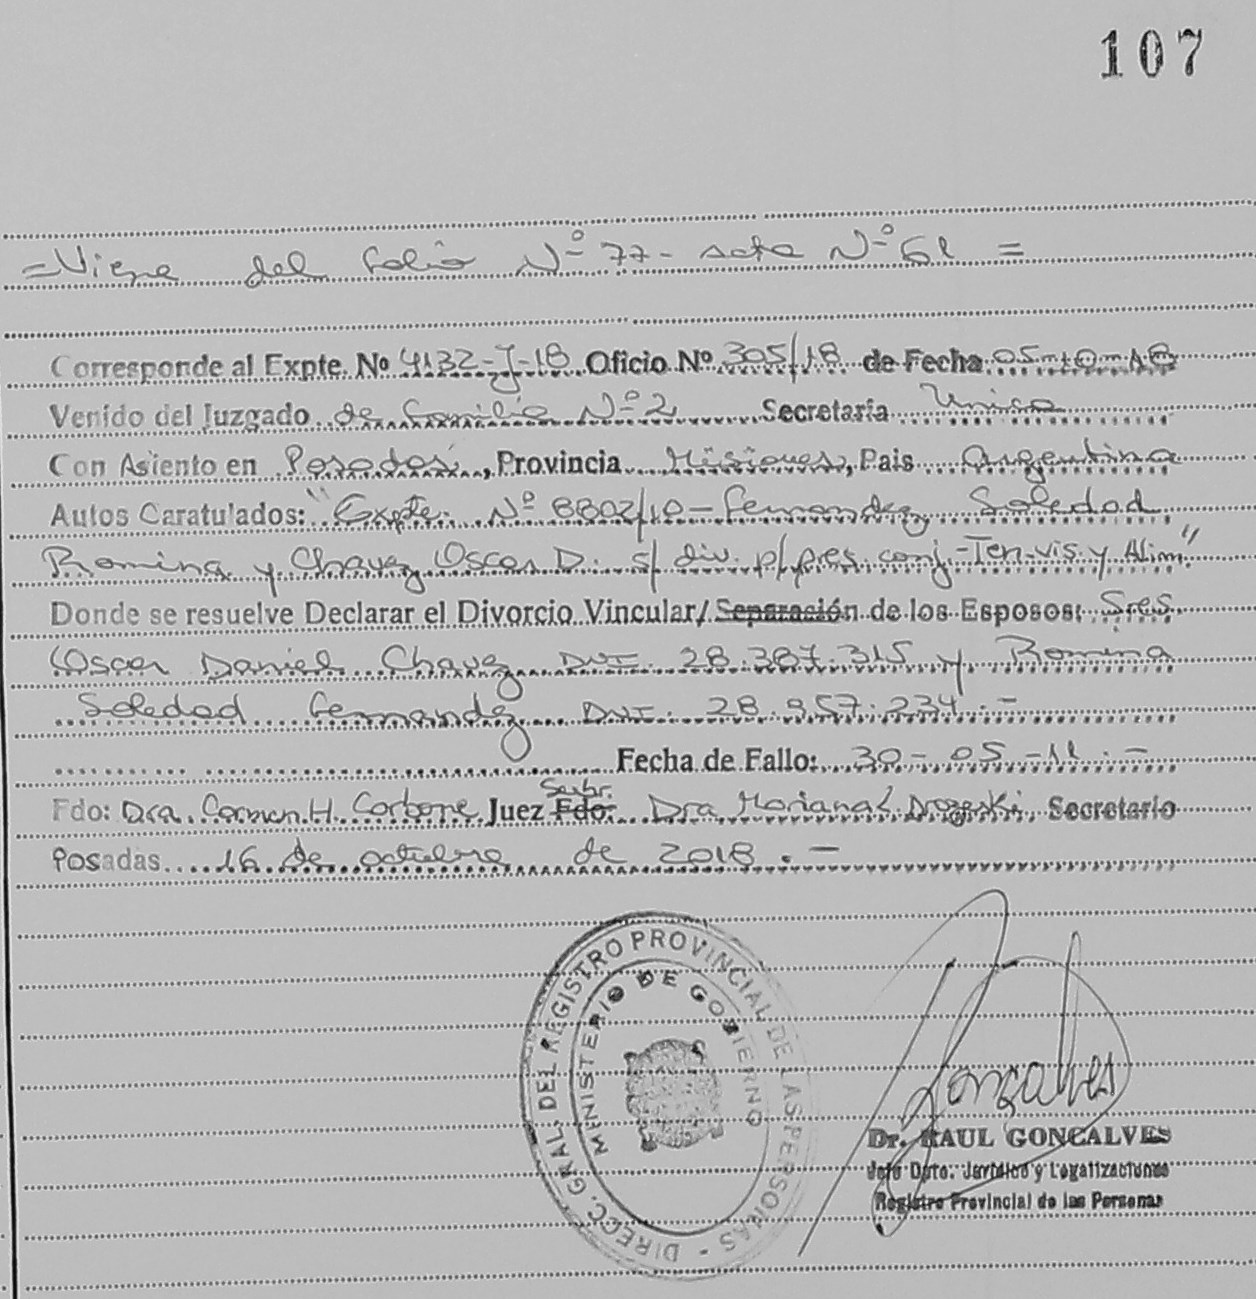 107
=Viene del folio Nº 77- acta Nº 61 =
Corresponde al Expte. Nº 4132-J-18 Oficio Nº 305/18 de Fecha 05-10-18
Venido del Juzgado de Familia Nº 2 Secretaria Unica
Con Asiento en Posadas, Provincia Misiones, Pais Argentina
Autos Caratulados: "Expte. Nº 8802/10-Fernandez Soledad
Romina y Chavez Oscar D. s/ div. p/pres. conj.-Ten-vis. y Alim."
Donde se resuelve Declarar el Divorcio Vincular/Separación de los Esposos: Sres.
Oscar Daniel Chavez DNI. 28.387.315 y Romina
Soledad Fernandez DNI. 28.957.234.-
Fecha de Fallo: 30-05-11.-
Fdo: Dra. Carmen H. Carbone Juez Subr. Fdo: Dra Mariana Drozeski, Secretario
Posadas 16 de octubre de 2018.-
DIRECC. GRAL. DEL REGISTRO PROVINCIAL DE LAS PERSONAS -
MINISTERIO DE GOBIERNO
Gonçalves
Dr. RAUL GONCALVES
Jefe Dpto. Jurídico y Legalizaciones
Registro Provincial de las Personas